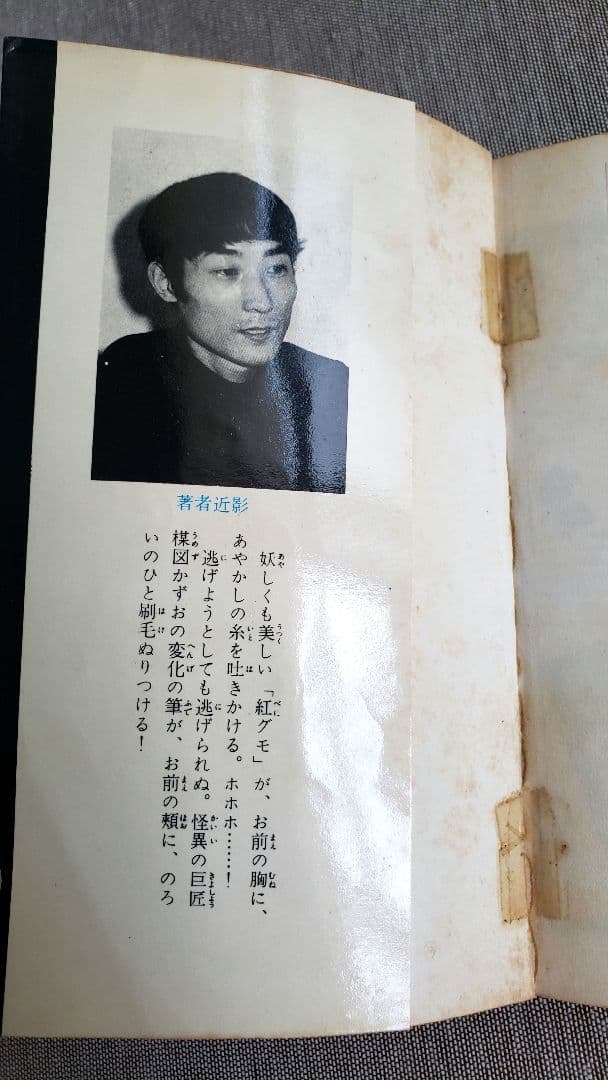 著者近影
妖しくも美しい「紅グモ」が、お前の胸に、
あやかしの糸を吐きかける。ホホホ……！
逃げようとしても逃げられぬ。怪異の巨匠
楳図かずおの変化の筆が、お前の頬に、のろ
いのひと刷毛ぬりつける！